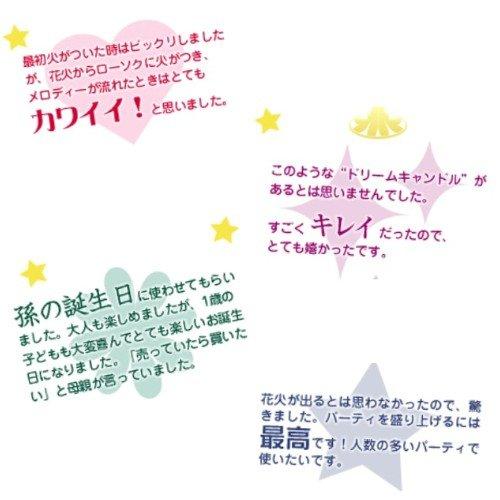 最初火がついた時はビックリしました
が、花火からローソクに火がつき、
メロディーが流れたときはとても
カワイイ！と思いました。
このような“ドリームキャンドル”が
あるとは思いませんでした。
すごくキレイだったので、
とても嬉かったです。
孫の誕生日に使わせてもらい
ました。大人も楽しめましたが、1歳の
子どもも大変喜んでとても楽しいお誕生
日になりました。「売っていたら買いた
い」と母親が言っていました。
花火が出るとは思わなかったので、驚
きました。パーティを盛り上げるには
最高です！人数の多いパーティで
使いたいです。